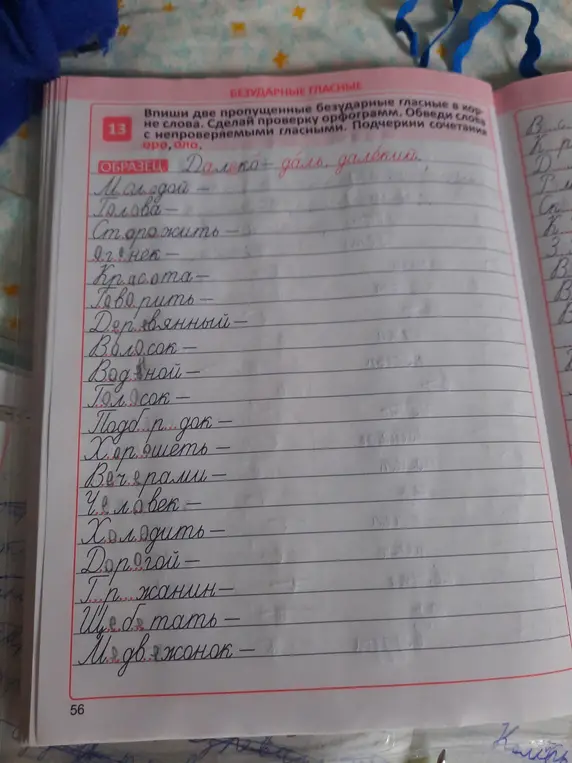 БЕЗУДАРНЫЕ ГЛАСНЫЕ
13 Впиши две пропущенные безударные гласные в кор-
не слова. Сделай проверку орфограмм. Обведи слова
с непроверяемыми гласными. Подчеркни сочетания
оро, оло.
ОБРАЗЕЦ Далеко – даль, далёкий.
Молодой –
Голова –
Сторожить –
Огонек –
Красота –
Говорить –
Деревянный –
Волосок –
Водяной –
Голосок –
Подб..р...док –
Хорошеть –
Вечерами –
Человек –
Холодить –
Дорогой –
Г..р...жанин –
Щебетать –
Медвежонок –
56